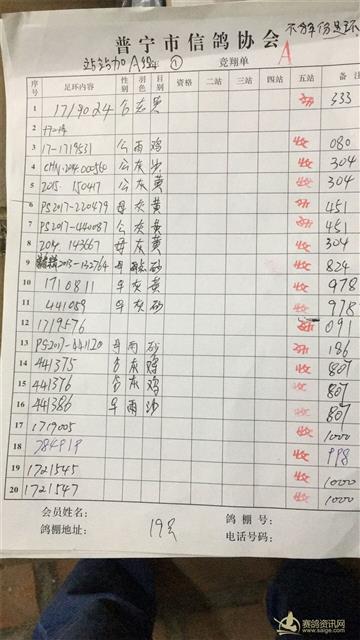 不分年份足环
普宁市信鸽协会
站站加A组 ① 竞翔单 A
序号 足环内容 性别 羽色 目别 资格 二站 三站 四站 五站 备注
1 1719024 黄 333
2
3 17-1719531 公 雨 鸡 收 080
4 CHN.204.000560 公 灰 沙 收 304
5 2015. 150417 公 灰 黄 收 304
6 PS2017-220479 母 灰 黄 451
7 PS2017-440087 公 灰 黄 收 451
8 204. 143667 母 灰 黄 收 304
9 2015-132764 砂 收 824
10 1710811 灰 黄 收 978
11 441059 灰 砂 收 978
12 1719576 091
13 PS2017-441120 雨 砂 186
14 441375 灰 鸡 收 807
15 441376 灰 鸡 收 807
16 441386 雨 沙 收 807
17 1719005 收 1000
18 784919 收 998
19 1721545 收 1000
20 1721547 收 1000
会员姓名: 鸽棚号:
鸽棚地址: 19 电话号码:
赛鸽资讯网
www.saige.com